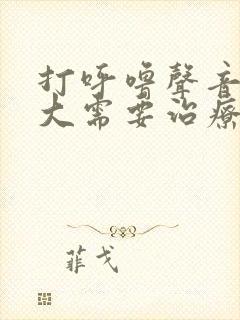 打呼嚕聲音
大需要治療
菲戈